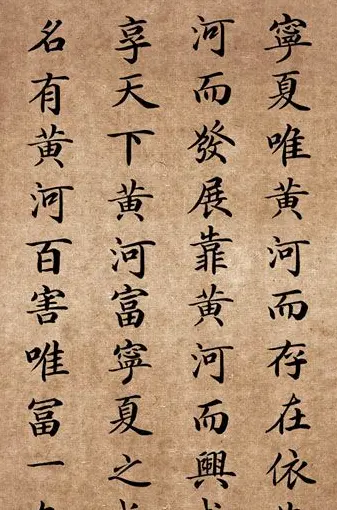 寧夏唯黃河而存在依
河而發展靠黃河而興
享天下黃河富寧夏之
名有黃河百害唯冨一